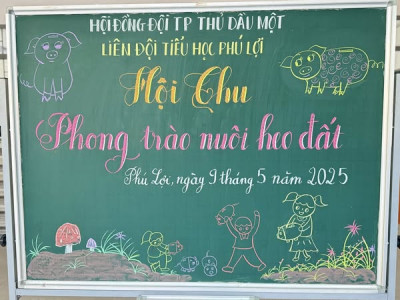 HỘI ĐỒNG ĐỘI TP THỦ DẦU MỘT
LIÊN ĐỘI TIỂU HỌC PHÚ LỢI
Hội Thu
Phong trào nuôi heo đất
Phú Lợi, ngày 9 tháng 5 năm 2025